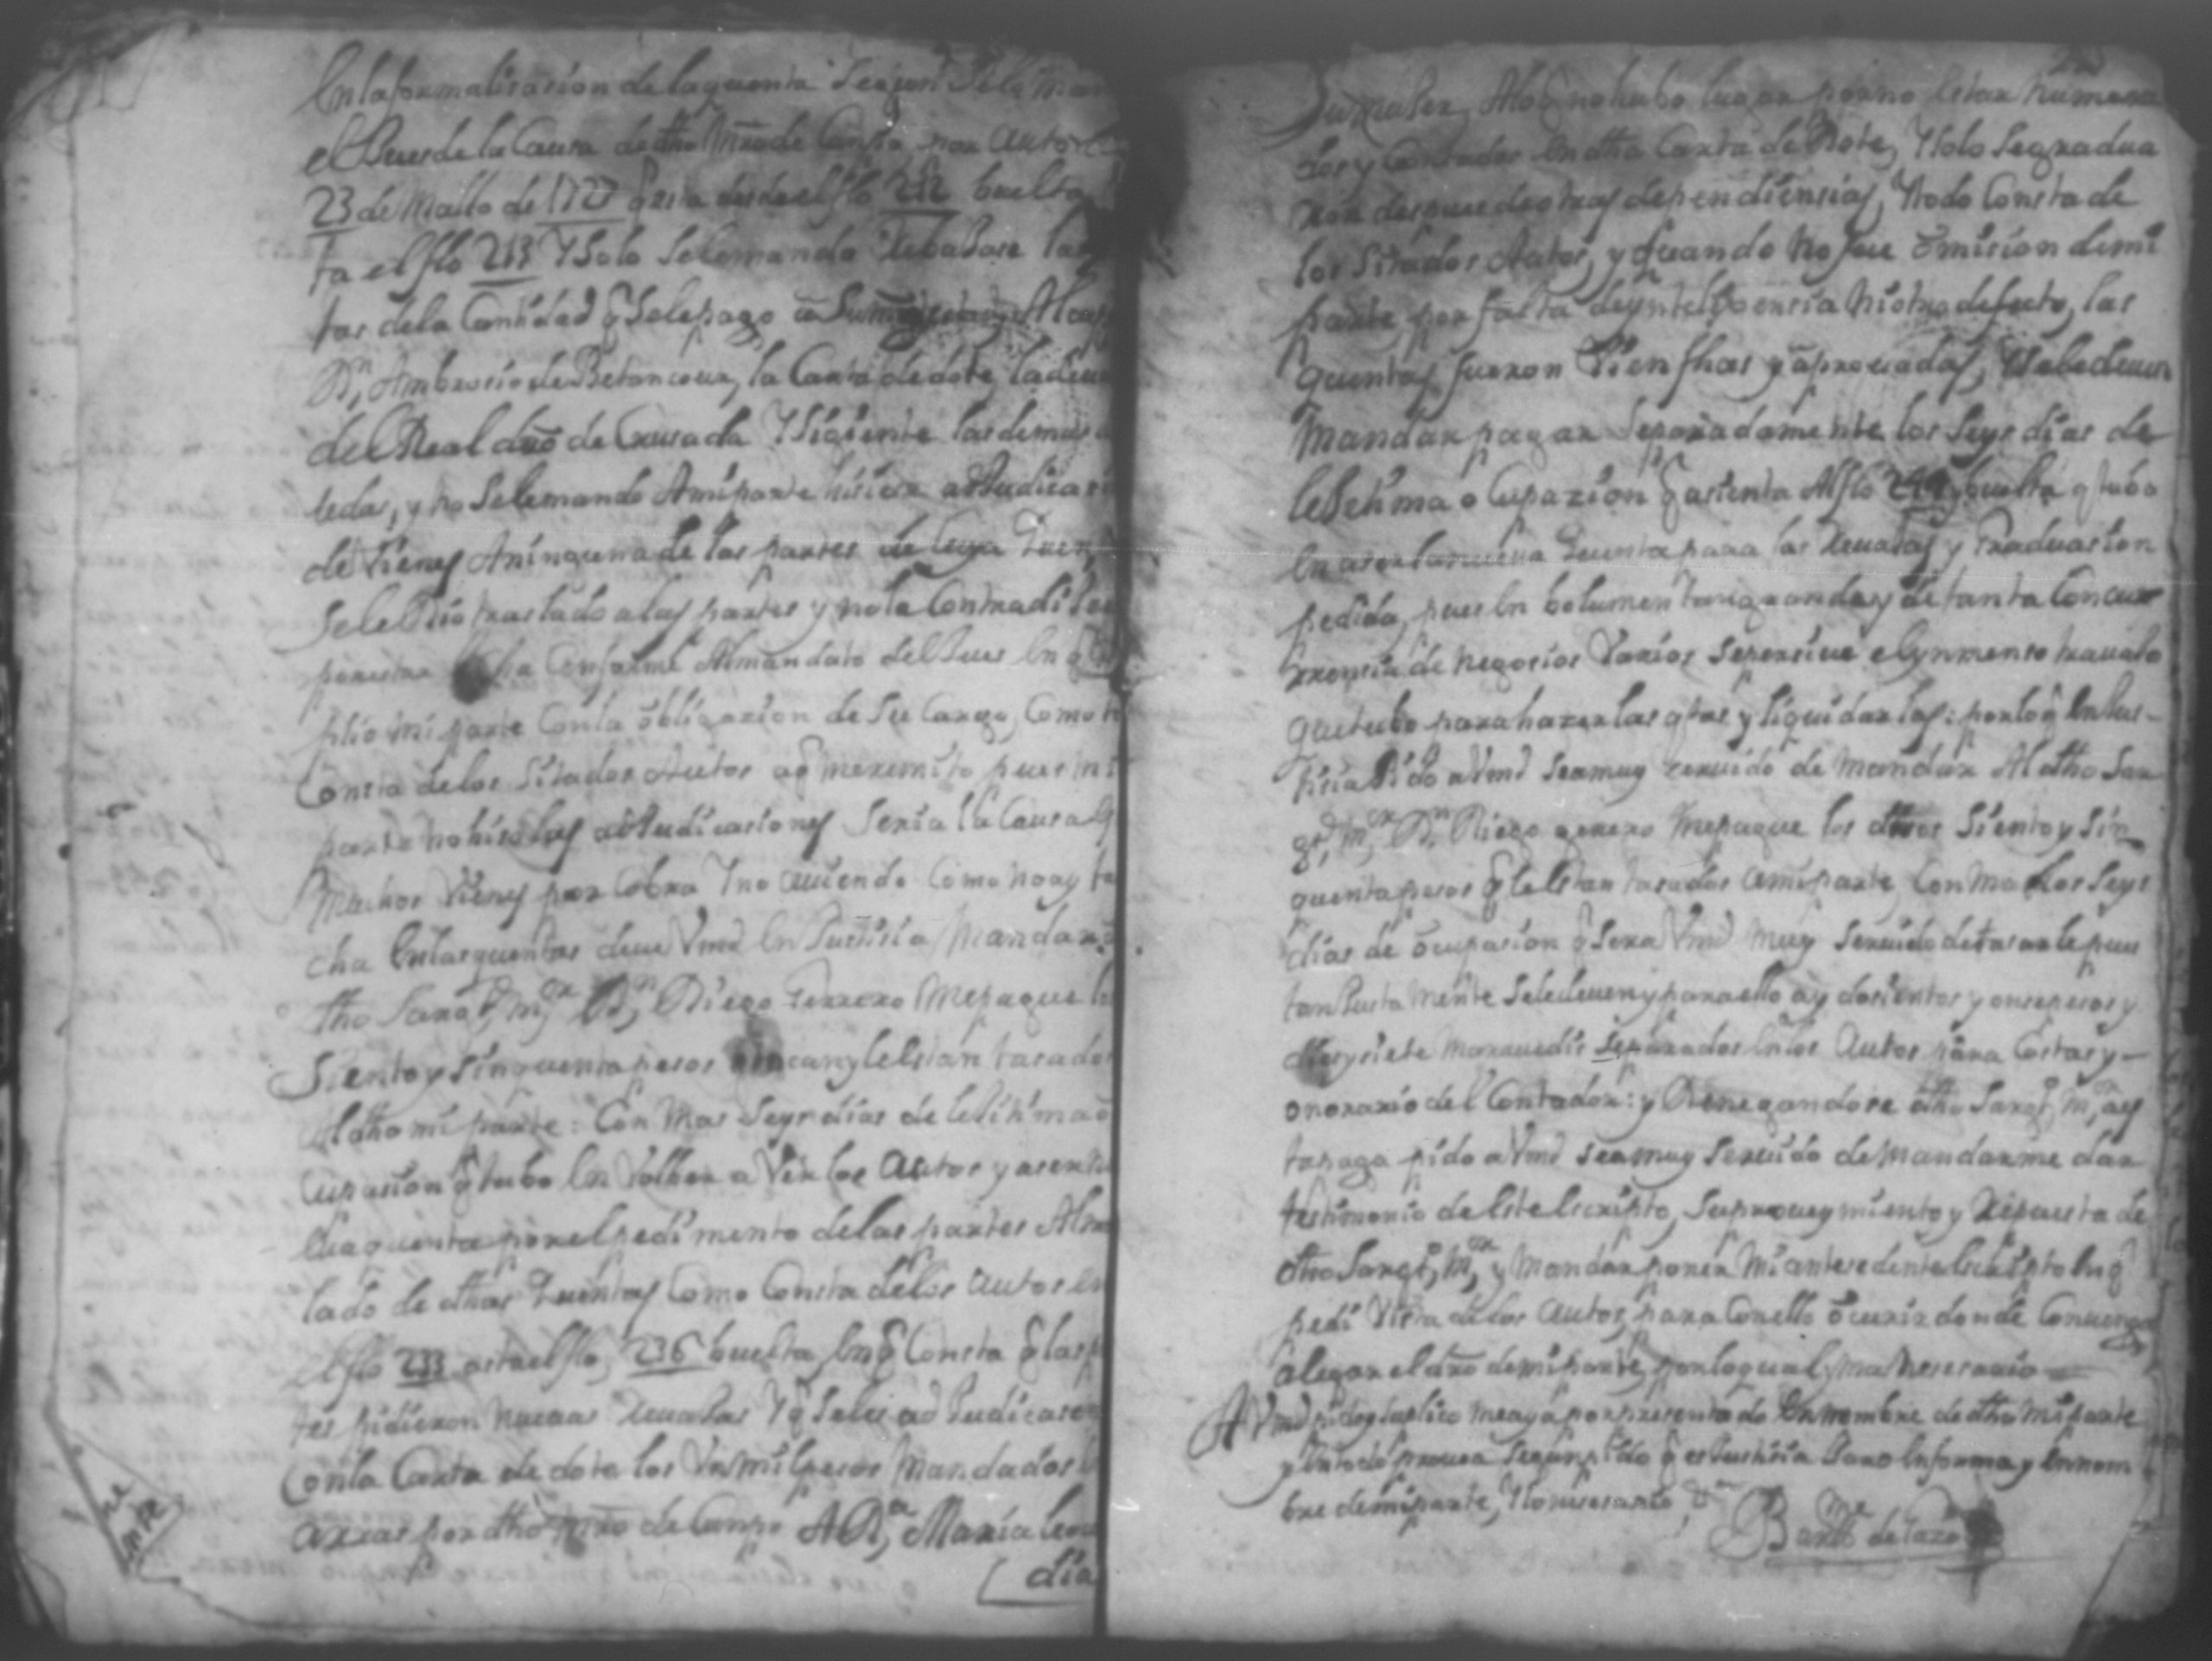 En la formalisasion de la quenta Segun Se le man
el Jues de la Causa de dho Mro de Campo por auto de
23 de Mallo de 1727 q esta desde el flo 212 buelta
ta el flo 213 Y Solo Se le mando Rebajase las
tas de la Cantidad q Se le pago a Su
Dn, Ambrosio de Betancour, la Carta de dote, la deu
del Real dro de Crusada Y Siguiente las demas
das, y no Se le mando A mi parte hisiera adJudicasi
de Vienes A ninguna de las partes de Cuya Quen
Se le Dio traslado a las partes y no la Contradi
por estar fha Conforme Al mandato del Jues En q
plio mi parte Con la obligazion de Su Cargo, Como
Consta de los Sitados Autos a q me remito pues
parte no hiso las adJudicasiones Seria la Causa
muchos Vienes por Cobra Y no auiendo Como no ay
cha En las quentas deue Vmd En Justisia Mandar
dho Sargto, mor, Dn, Diego guerrero Me pague lo
Siento y Sinquenta pesos le Estan tasados
Al dho mi parte: Con Mas Seys dias de lesitima o
Cupasion q tubo En Volber a Ver los Autos y
por el pedimento de las partes
lado de dhas Quentas Como Consta de los Autos en
el flo 233 asta el flo, 236 buelta, En q Consta q las p
tes pidieron nueuas Reuajas Y q Se les adJudicase
Con la Carta de dote los Vn mil pesos Mandados
arras por dho Mro de Campo A Da, Maria
dia
Su muler, A lo q no hubo lugar por no Estar numera
dos y Contados En dha Carta de Dote, Y Solo Se gradua
ron despues de otras dependiensias, Y todo Consta de
los Sitados Autos, y quando no fue omision de mi
parte, por falta de ynteligensia ni otro defecto, las
quentas fueron Vien fhas y aprouadas, Y Se le deuen
Mandar pagar Separadamente los Seys dias de
leSitima o Cupazion q asienta Al flo buelta q tubo
En aser la nueua Quenta para las Reuajas y Graduasion
pedida, pues En bolumen tan grande y de tanta Concu
rrensia de negosios Varios Se persiue el ynmenso trauajo
que tubo para hazer las qtas y liquidarlas: por lo q En Jus-
tisia Pido a Vmd Sea muy seruido de mandar Al dho Sar
gto, mor, Dn, Diego gerrero Me pague los dhos Siento y Sin
quenta pesos q le Estan tasados a mi parte, Con mas los Seys
dias de ocupasion q Sera Vmd Muy Seruido de tasarle pues
tan Justa Mente Se le deuen y para ello ay dosientos y onse pesos y
dies y siete marauedis Separados En los Autos para Costas y-
onorario del Contador: y Denegandose dho Sargto, mor, a es
ta paga pido a Vmd Sea muy Seruido de Mandarme dar
testimonio de Este Escripto, Su proueymiento y Respuesta de
dho Sargto, Mor, y Mandar poner Mi antesedente Escripto En q
pedi Vista de los Autos, para Con ello ocurir donde Conuenga
alegar el dro de mi parte, por lo qual y mas nesesario-
A Vmd pido y Suplico me aya por presentado En nombre de dho mi parte
y En todo prouea Segun pido q es Justisia Juro En forma y En nom
bre de mi parte, Y lo nesesario, &a
Barme de Lazo